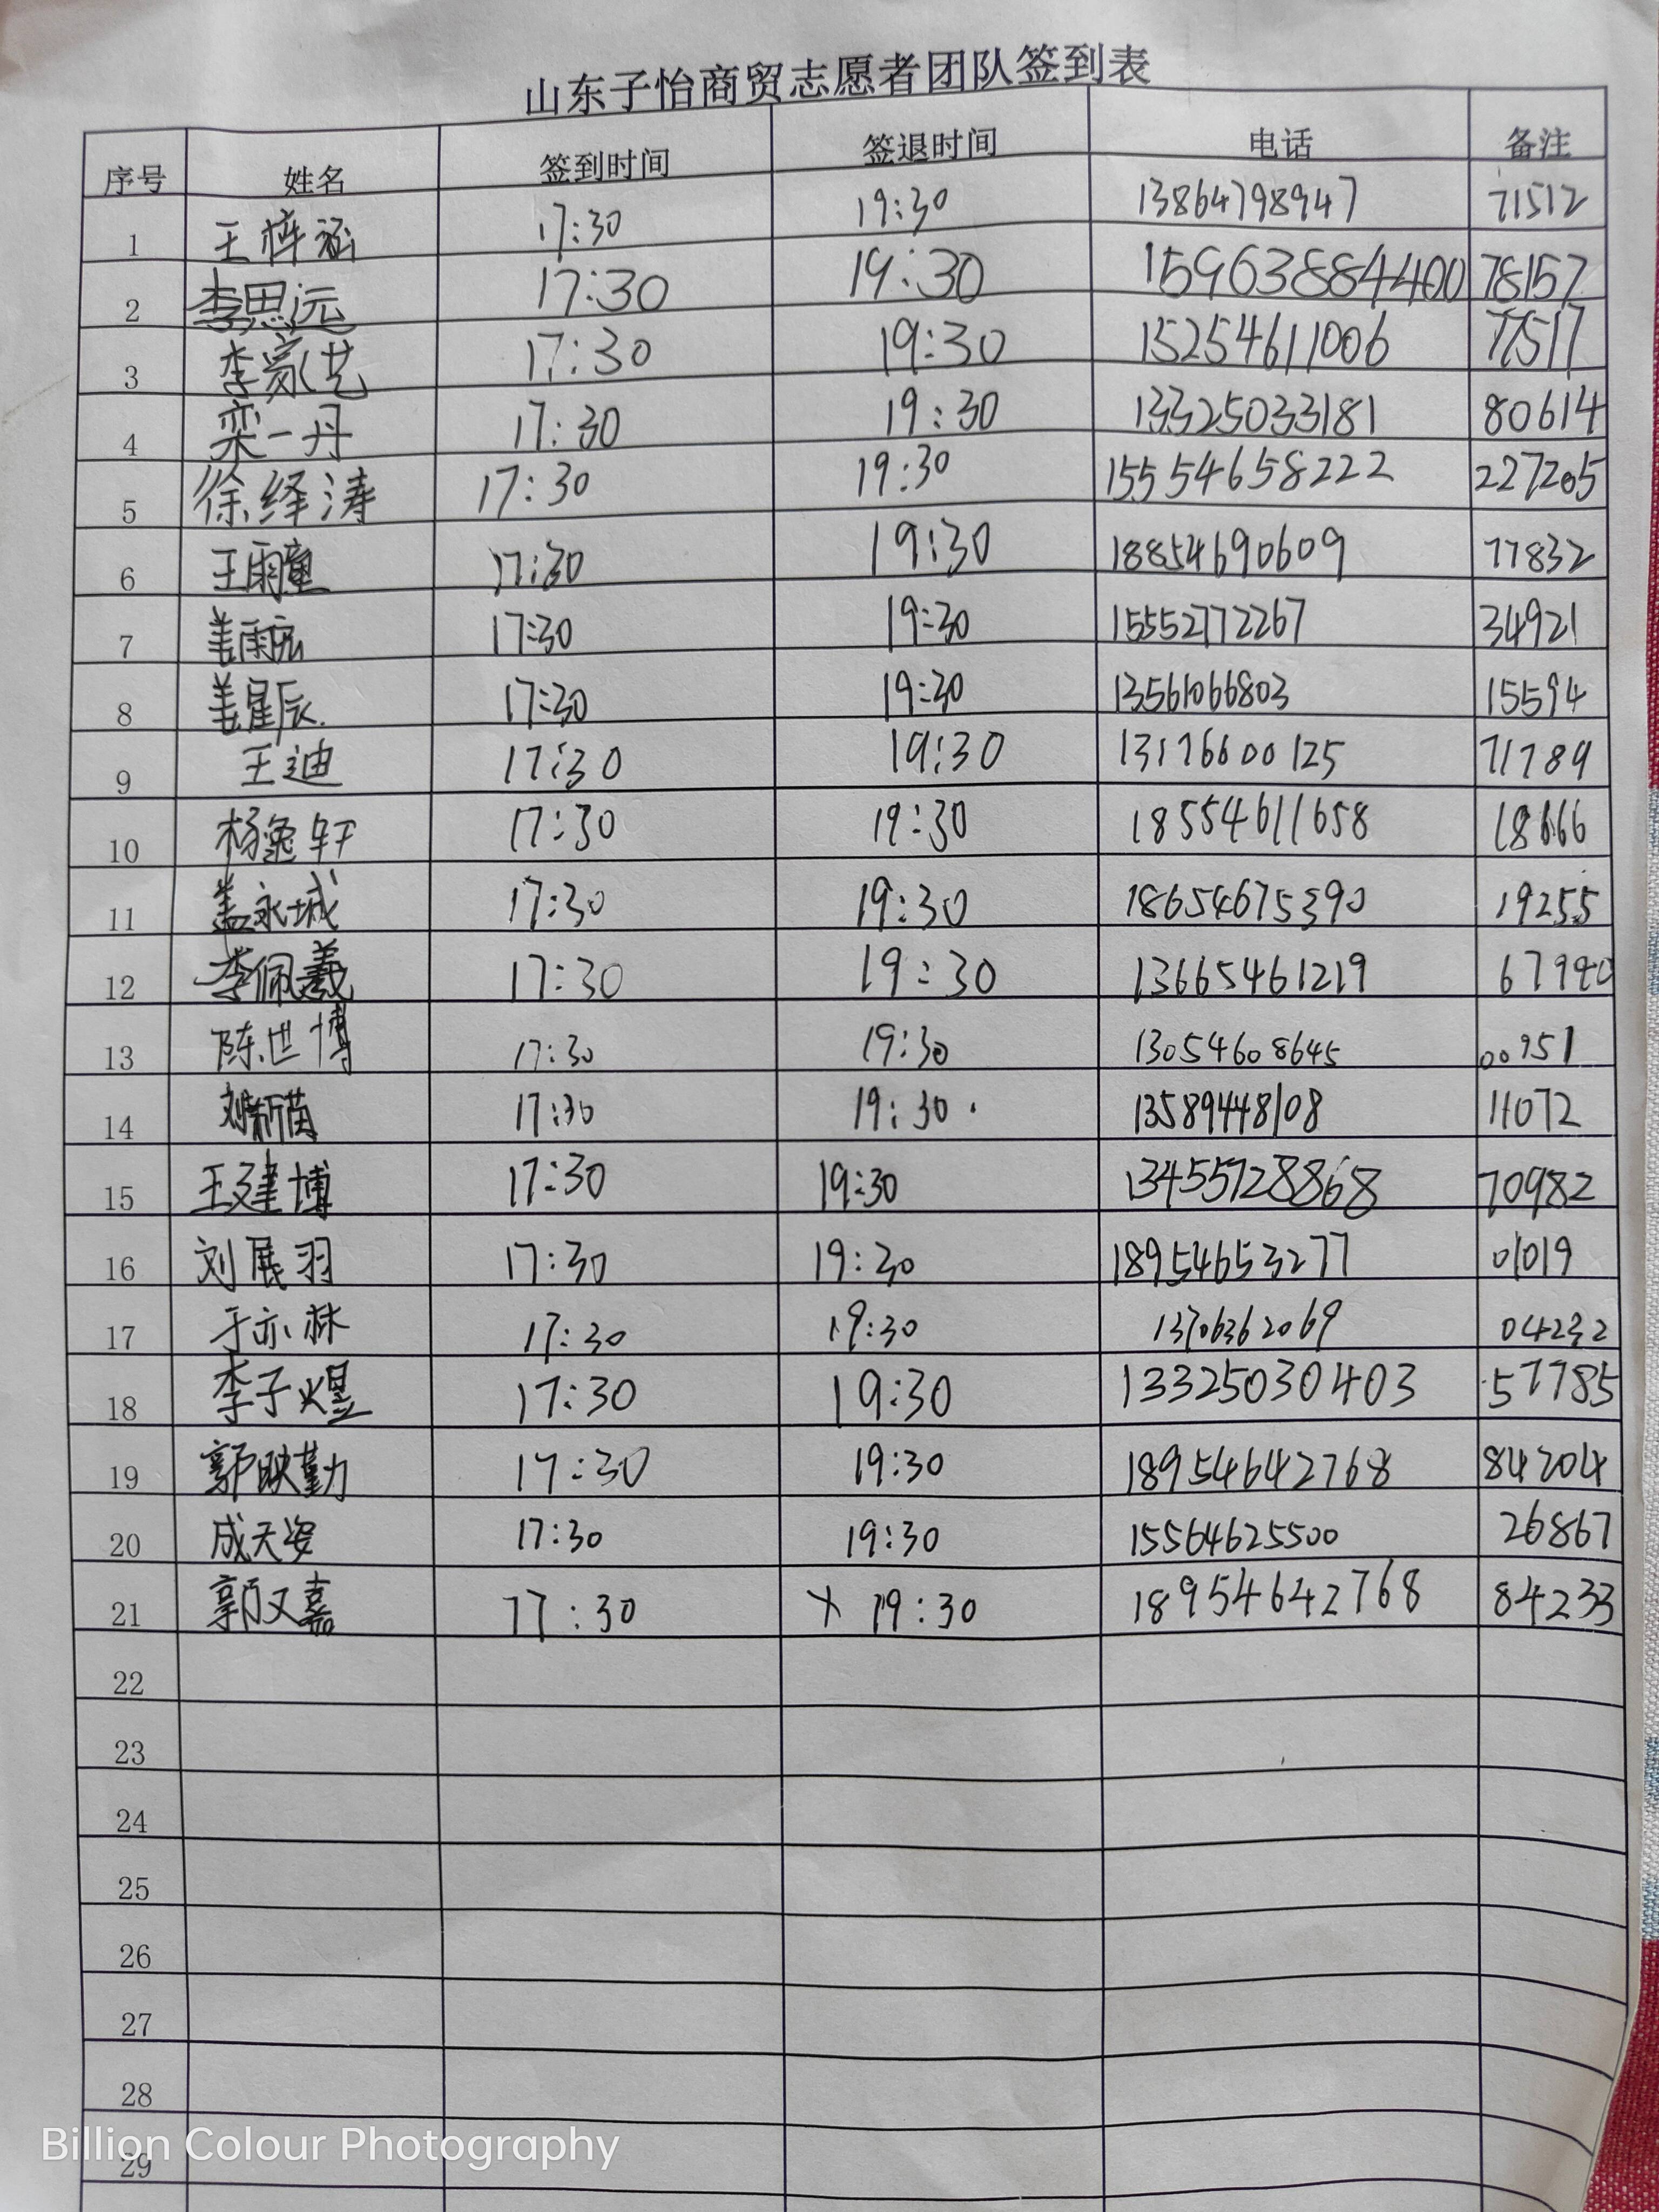 山东子怡商贸志愿者团队签到表
序号 姓名 签到时间 签退时间 电话 备注
1 王梓涵 17:30 19:30 13864798947 71512
2 李思远 17:30 19:30 159638884400 78157
3 李家艺 17:30 19:30 15254611006 77517
4 栾一丹 17:30 19:30 13325033181 80614
5 徐绎涛 17:30 19:30 15554658222 227205
6 王雨童 17:30 19:30 18854690609 77832
7 盖雨宸 17:30 19:30 15552772267 34921
8 盖星辰. 17:30 19:30 13561066803 15594
9 王迪 17:30 19:30 13176600125 71789
10 杨逸轩 17:30 19:30 18554611658 18666
11 盖永城 17:30 19:30 18654675390 19255
12 李佩羲 17:30 19:30 13665461219 67940
13 陈世博 17:30 19:30 13054608645 00951
14 刘新苗 17:30 19:30 13589448108 11072
15 王建博 17:30 19:30 13455728868 70982
16 刘展羽 17:30 19:30 18954653277 01019
17 于亦林 17:30 19:30 13706362069 04232
18 李子煜 17:30 19:30 13325030403 57785
19 郭映勤 17:30 19:30 18954642768 84204
20 成天姿 17:30 19:30 15564625500 26867
21 郭又嘉 17:30 19:30 18954642768 84233
22
23
24
25
26
27
28
29
Billion Colour Photography